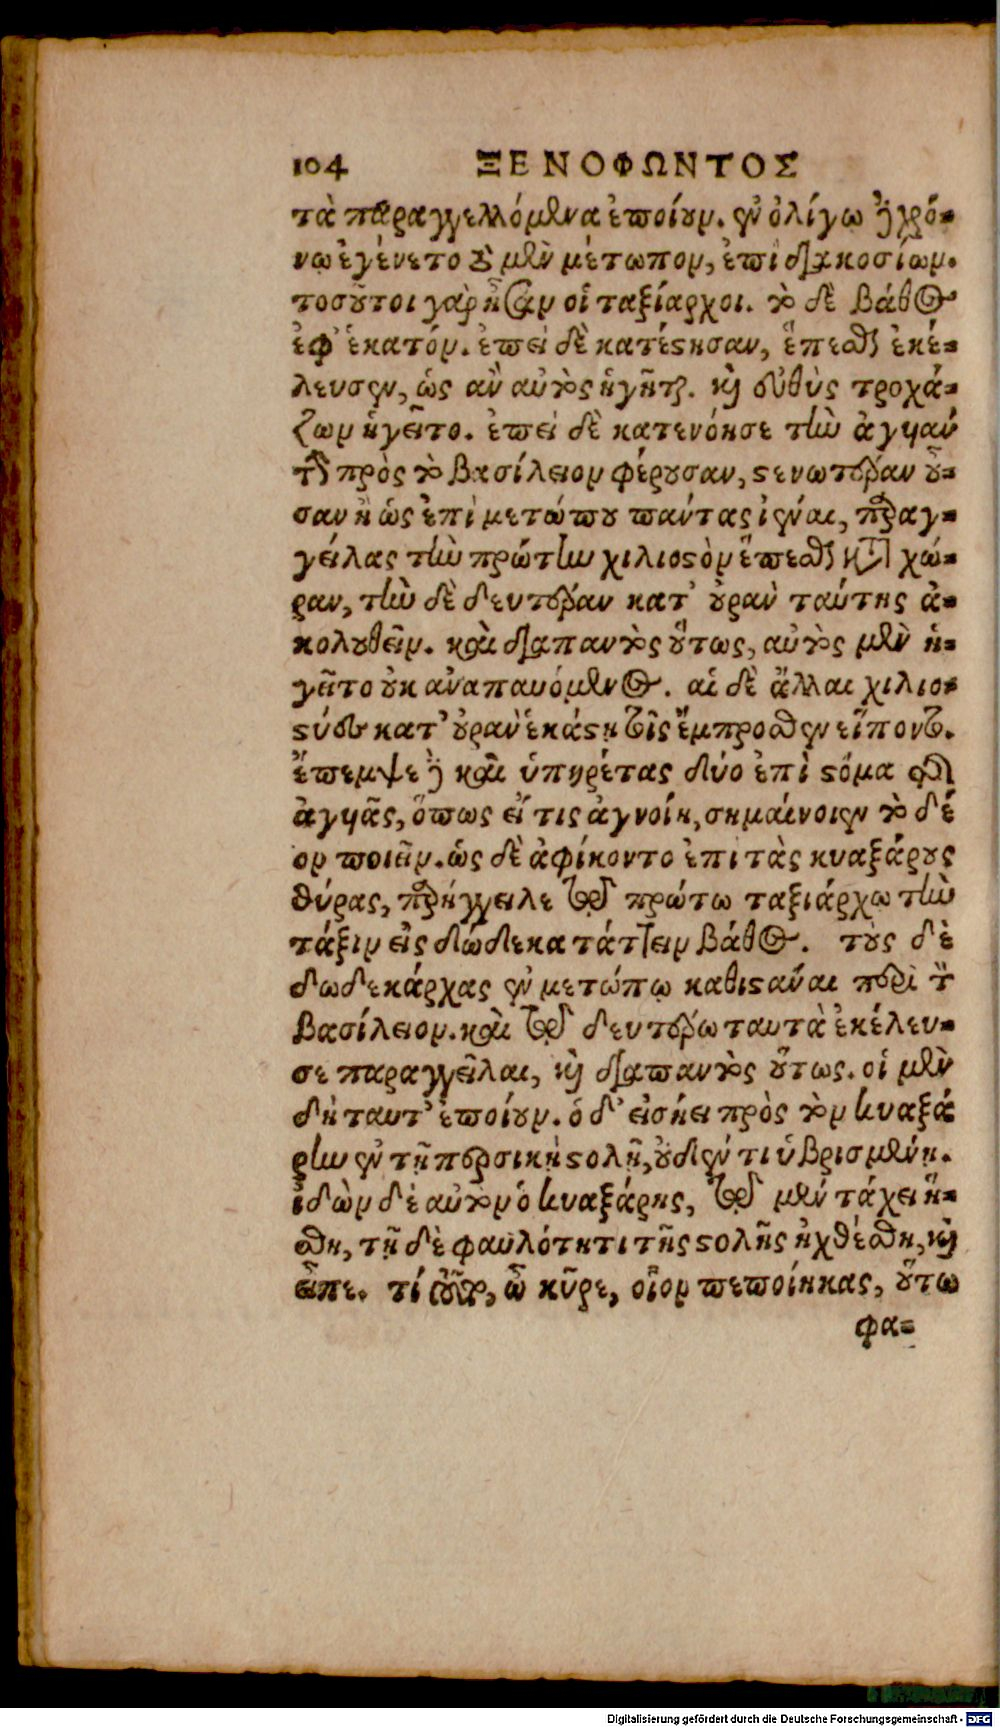 104 ΞΕΝΟΦΩΝΤΟΣ
τὰ παραγγελλόμενα ἐποίουν. ἐν ὀλίγῳ δὲ χρό-
νῳ ἐγένετο τὸ μὲν μέτωπον, ἐπὶ διακοσίων.
τοσοῦτοι γὰρ ἦσαν οἱ ταξίαρχοι. τὸ δὲ βάθος
ἐφ' ἑκατόν. ἐπεὶ δὲ κατέστησαν, ἕπεσθαι ἐκέ-
λευσεν, ὡς ἂν αὐτὸς ἡγῆται. καὶ εὐθὺς τροχά-
ζων ἡγεῖτο. ἐπεὶ δὲ κατενόησε τὴν ἀγυιὰν
τὴν πρὸς τὸ βασίλειον φέρουσαν, στενωτέραν οὖ-
σαν ἢ ὡς ἐπὶ μετώπου πάντας ἰέναι, παραγ-
γείλας τὴν πρώτην χιλιοστὺν ἕπεσθαι κατὰ χώ-
ραν, τὴν δὲ δευτέραν κατ' οὐρὰν ταύτης ἀ-
κολουθεῖν. καὶ διαπαντὸς οὕτως, αὐτὸς μὲν ἡ-
γεῖτο οὐκ ἀναπαυόμενος. αἱ δὲ ἄλλαι χιλιο-
στύες κατ' οὐρὰν ἑκάστη τῆς ἔμπροσθεν εἵποντο.
ἔπεμψε δὲ καὶ ὑπηρέτας δύο ἐπὶ στόμα τῆς
ἀγυιᾶς, ὅπως εἴ τις ἀγνοίη, σημαίνοιεν τὸ δέ
ον ποιεῖν. ὡς δὲ ἀφίκοντο ἐπὶ τὰς κυαξάρους
θύρας, παρήγγειλε τῷ πρώτῳ ταξιάρχῳ τὴν
τάξιν εἰς δώδεκα τάττειν βάθος. τοὺς δὲ
δωδεκάρχας ἐν μετώπῳ καθιστάναι περὶ τὸ
βασίλειον. καὶ τῷ δευτέρῳ ταυτὰ ἐκέλευ-
σε παραγγεῖλαι, καὶ διαπαντὸς οὕτως. οἱ μὲν
δὴ ταυτ' ἐποίουν. ὁ δ' εἰσῄει πρὸς τὸν κυαξά
ρην ἐν τῇ περσικῇ στολῇ, οὐδέν τι ὑβρισμένῃ.
ἰδὼν δὲ αὐτὸν ὁ κυαξάρης, τῷ μὲν τάχει ἥ-
σθη, τῇ δὲ φαυλότητι τῆς στολῆς ἠχθέσθη, καὶ
εἶπε. τί τοῦτο, ὦ κῦρε, οἷον πεποίηκας, οὕτω
φα-
Digitalisierung gefördert durch die Deutsche Forschungsgemeinschaft - DFG